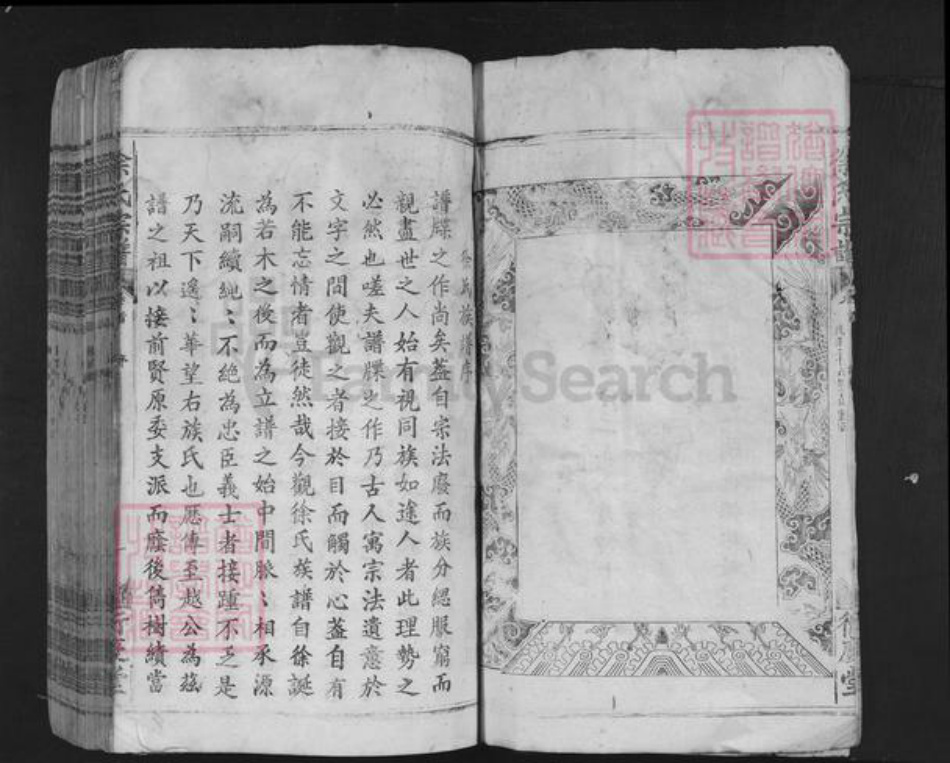 徐氏族譜序
譜牒之作尚矣葢自宗法廢而族分緦服窮而
親盡世之人始有視同族如途人者此理勢之
必然也嗟夫譜牒之作乃古人寓宗法遺意於
文字之間使觀之者接於目而觸於心葢自有
不能忘情者豈徒然哉今觀徐氏族譜自徐誕
為若木之後而為立譜之始中間脉〻相承源
流嗣續繩〻不絶為忠臣義士者接踵不乏是
乃天下遥〻華望右族氏也歷傳至越公為兹
譜之祖以接前賢原委支派而廕後裔樹績當
徐氏宗譜
FamilySearch